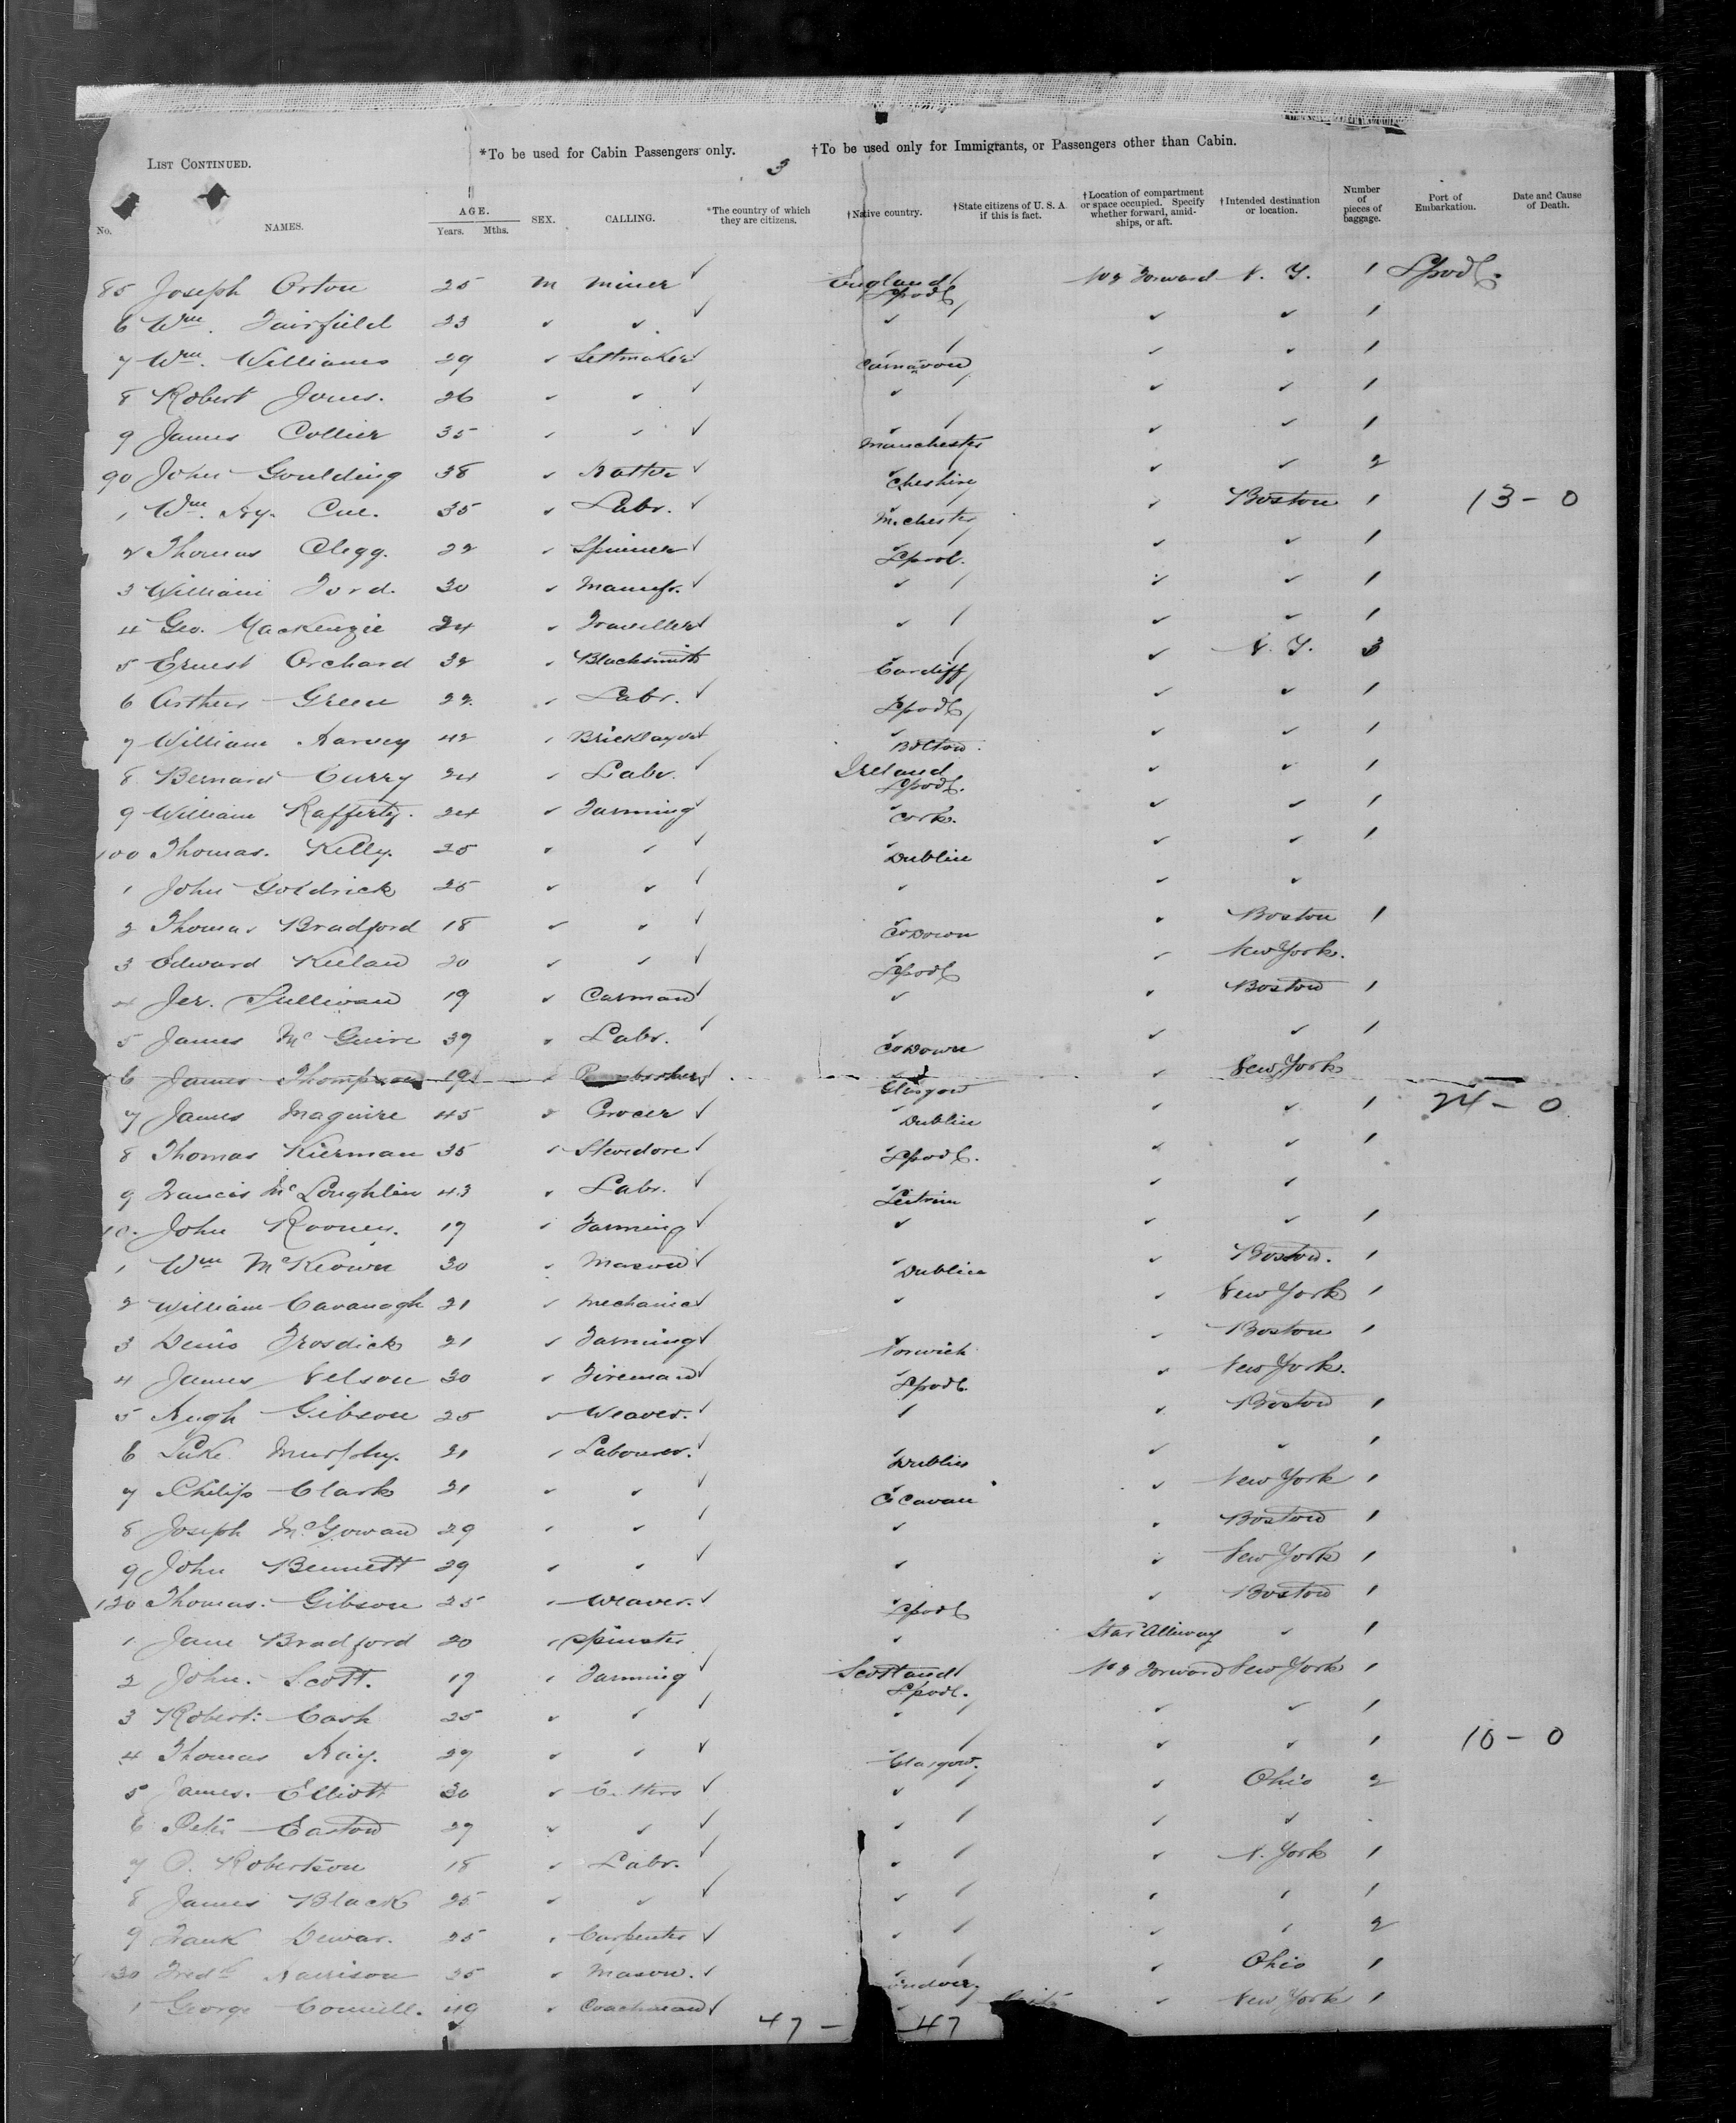 *To be used for Cabin Passengers only. †To be used only for Immigrants, or Passengers other than Cabin.
LIST CONTINUED.
3
No. NAMES. AGE. Years. Mths. SEX. CALLING. *The country of which they are citizens. †Native country. †State citizens of U. S. A if this is fact. †Location of compartment or space occupied. Specify whether forward, amid-ships, or aft. †Intended destination or location. Number of pieces of baggage. Port of Embarkation. Date and Cause of Death.
85 Joseph Orton 25 M Miner ✓ England L'pool Forward N. Y. 1 L'pool.
6 Wm. Fairfield 23 ✓ ✓ ✓ ✓ ✓ ✓ 1
7 Wm. Williams 29 ✓ Settmaker ✓ Carnavon ✓ ✓ 1
8 Robert Jones. 26 ✓ ✓ ✓ ✓ ✓ ✓ 1
9 James Collier 35 ✓ ✓ ✓ Manchester ✓ ✓ 1
90 John Goulding 38 ✓ Hatter ✓ Cheshire ✓ ✓ 2
1 Wm. Hy. Cue. 35 ✓ Labr. ✓ M.chester ✓ Boston 1 13 - 0
2 Thomas Clegg. 22 ✓ Spinner ✓ L'pool. ✓ ✓ 1
3 William Ford. 30 ✓ Manufr. ✓ ✓ ✓ ✓ 1
4 Geo. MacKenzie 24 ✓ Traveller ✓ ✓ ✓ ✓ 1
5 Ernest Orchard 32 ✓ Blacksmith Cardiff ✓ N. Y. 3
6 Arthur Green 22 ✓ Labr. ✓ L'pool ✓ ✓ 1
7 William Harvey 42 ✓ Bricklayer ✓ Bolton ✓ ✓ 1
8 Bernard Curry 24 ✓ Labr. ✓ Ireland L'pool. ✓ ✓ 1
9 William Rafferty. 24 ✓ Farming ✓ Cork. ✓ ✓ 1
100 Thomas. Kelly. 25 ✓ ✓ ✓ Dublin ✓ ✓ 1
1 John Goldrick 25 ✓ ✓ ✓ ✓ ✓ ✓
2 Thomas Bradford 18 ✓ ✓ ✓ Co Down ✓ Boston 1
3 Edward Keelan 20 ✓ ✓ ✓ L'pool ✓ New York.
4 Jer. Sullivan 19 ✓ Carman ✓ ✓ ✓ Boston 1
5 James Mc Guire 39 ✓ Labr. ✓ Co Down ✓ ✓ 1
6 James Thompson 19 ✓ Glasgow ✓ New York
7 James Maguire 45 ✓ Grocer ✓ Dublin ✓ ✓ 1 24 - 0
8 Thomas Kierman 35 ✓ Stevedore ✓ L'pool. ✓ ✓ 1
9 Francis McLoughlin 43 ✓ Labr. ✓ Leitrim ✓ ✓
10. John Rooney. 19 ✓ Farming ✓ ✓ ✓ ✓ 1
1 Wm McKeown 30 ✓ Mason ✓ Dublin ✓ Boston. 1
2 William Cavanagh 21 ✓ Mechanic ✓ ✓ ✓ New York 1
3 Denis Trosdick 21 ✓ Farming ✓ Norwich ✓ Boston 1
4 James Nelson 30 ✓ Fireman ✓ L'pool. ✓ New York.
5 Hugh Gibson 25 ✓ Weaver. ✓ ✓ ✓ Boston 1
6 Luke Murphy. 21 ✓ Labourer. ✓ Dublin ✓ ✓ 1
7 Philip Clark 21 ✓ ✓ ✓ Co Cavan ✓ New York 1
8 Joseph McGowan 29 ✓ ✓ ✓ ✓ ✓ Boston 1
9 John Bennett 29 ✓ ✓ ✓ ✓ ✓ New York 1
120 Thomas. Gibson 25 ✓ Weaver. ✓ L'pool ✓ Boston 1
1 Jane Bradford 20 ✓ Spinster ✓ Alleway ✓ 1
2 John. Scott. 19 ✓ Farming ✓ Scotland L'pool. Forward New York 1
3 Robert. Cash 25 ✓ ✓ ✓ ✓ ✓ ✓ 1
4 Thomas Hay. 29 ✓ ✓ ✓ Glasgow. ✓ ✓ 1 10 - 0
5 James. Elliott 30 ✓ ✓ ✓ ✓ Ohio 2
6 Peter Easton 29 ✓ ✓ ✓ ✓ ✓ ✓
7 P. Robertson 18 ✓ Labr. ✓ ✓ ✓ N. York 1
8 James Black 25 ✓ ✓ ✓ ✓ ✓ ✓ 1
9 Frank Dewar. 25 ✓ Carpenter ✓ ✓ ✓ ✓ 2
130 Fredk Harrison 25 ✓ Mason. ✓ ✓ Ohio 1
1 George Connell. 49 ✓ Coachman ✓ ✓ New York 1
47 - 47